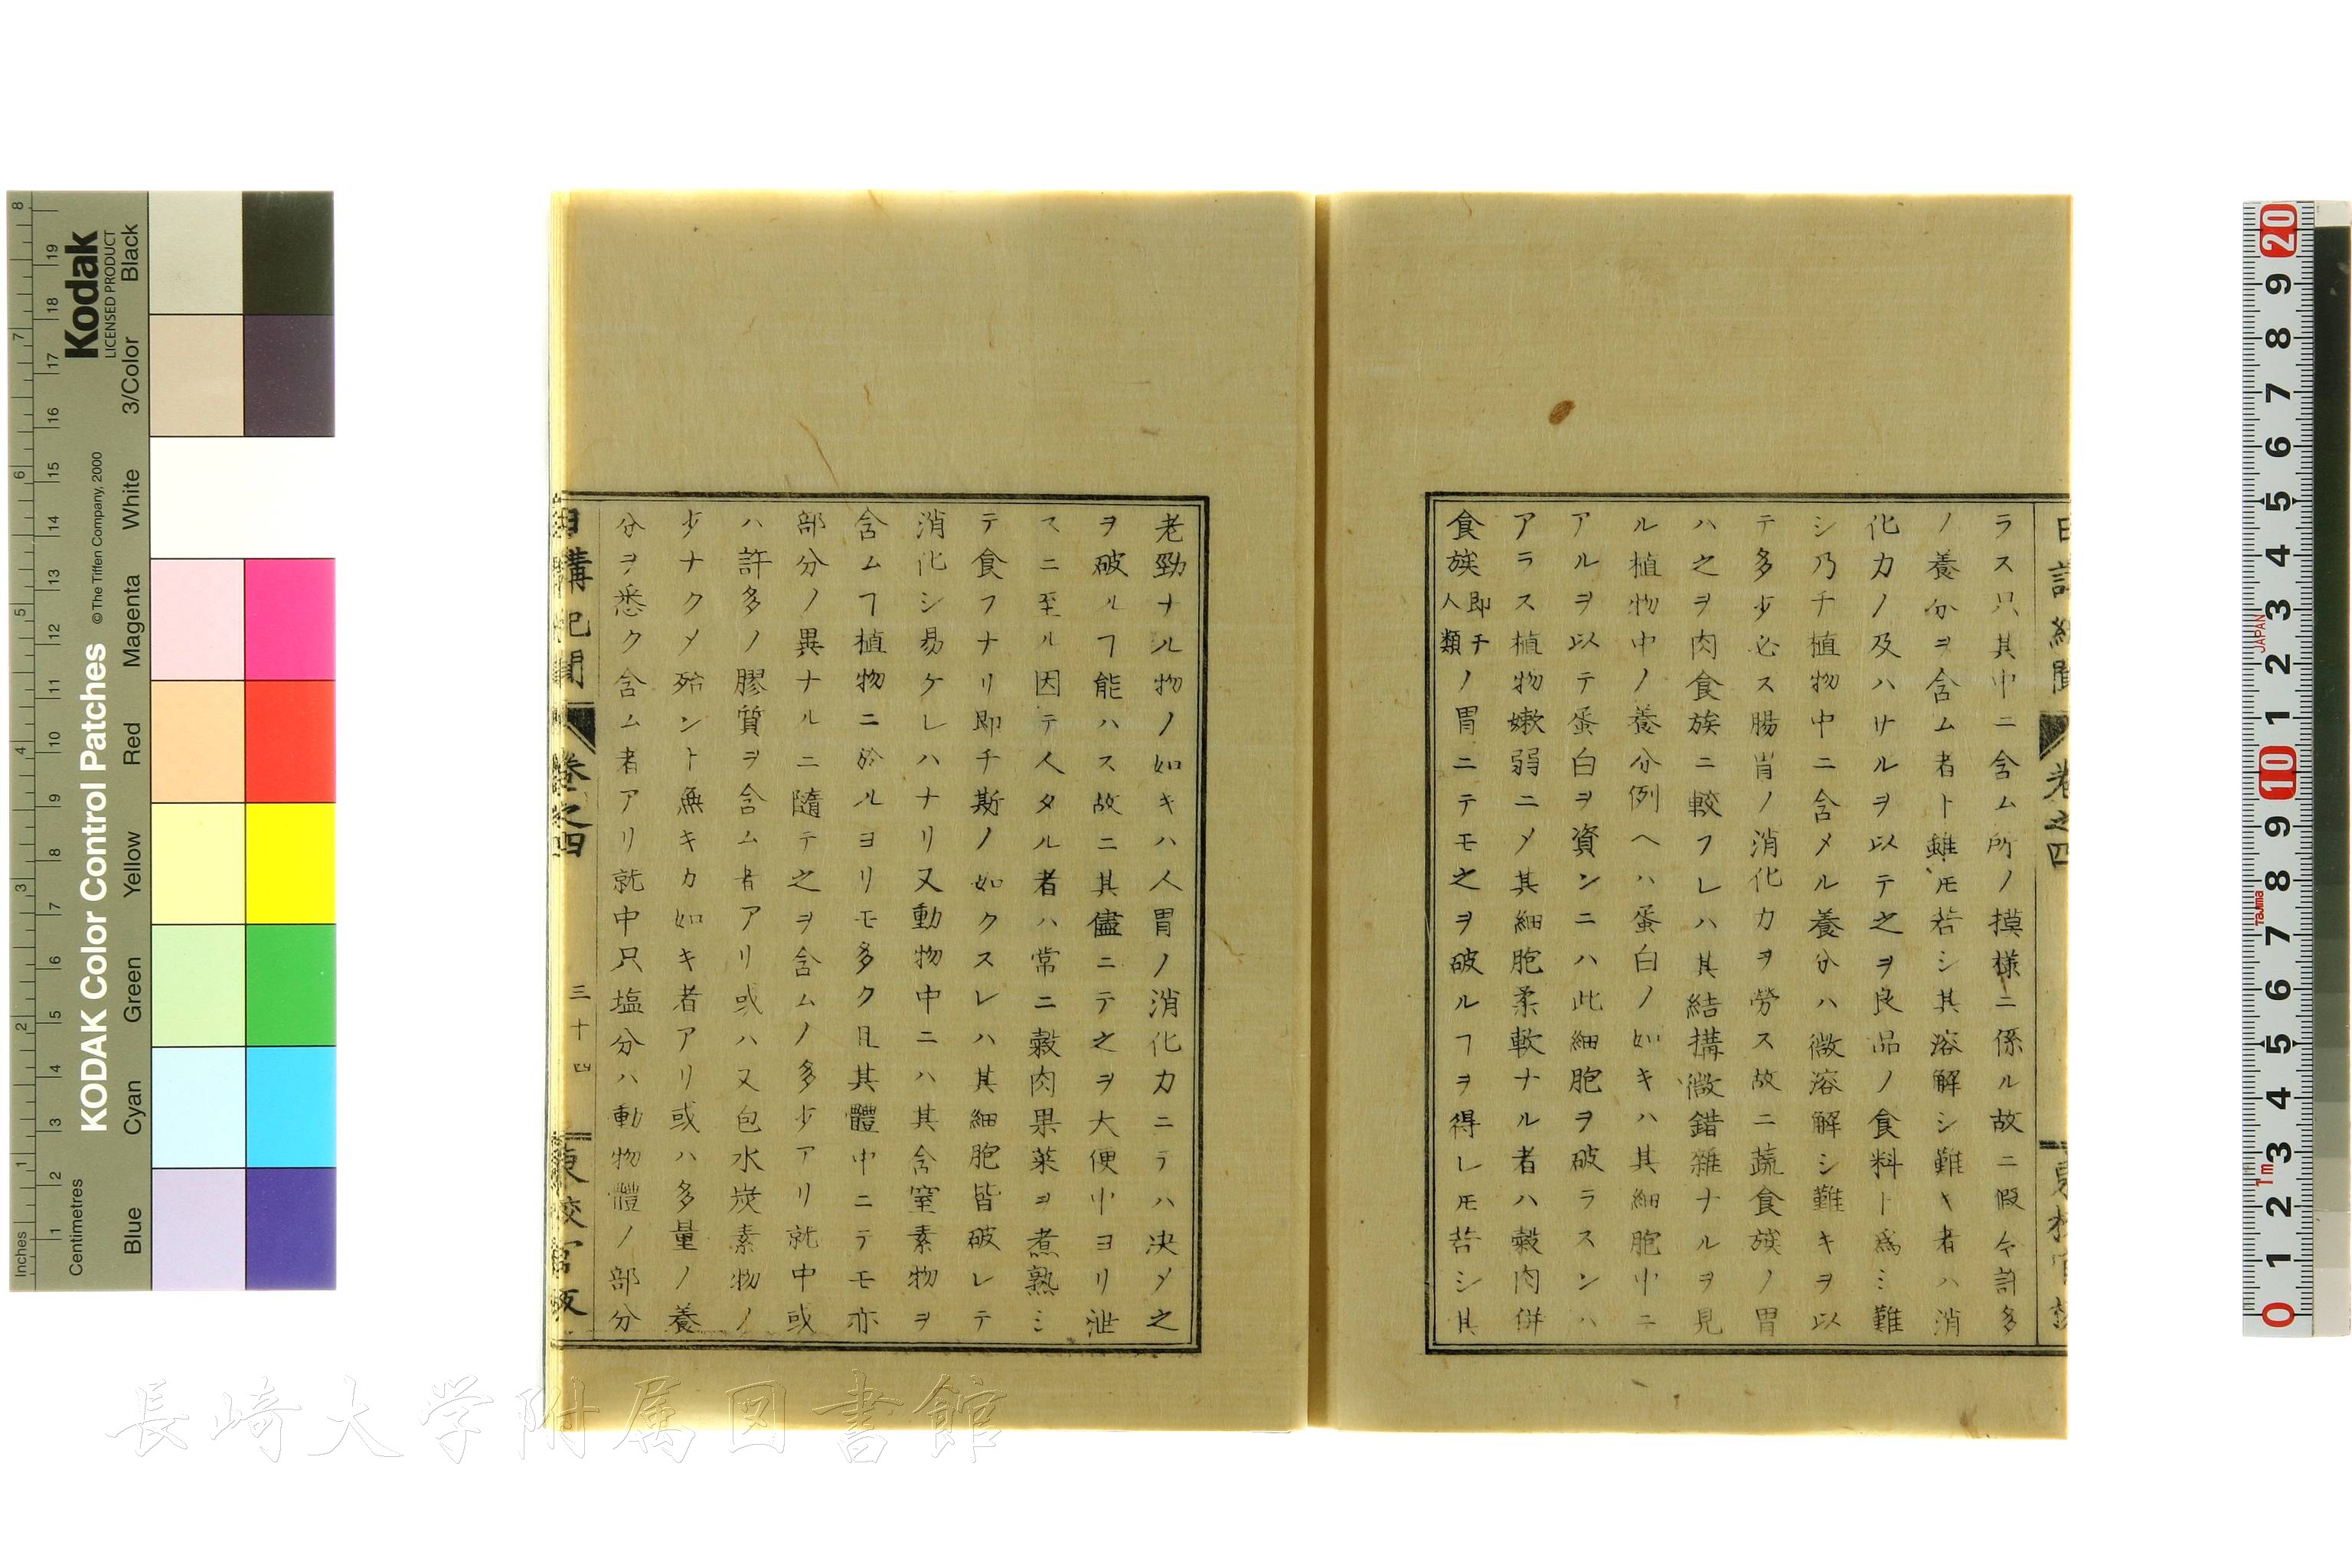 ラス只其中ニ含ム所ノ摸様ニ係ル故ニ假令許多
ノ養分ヲ含ム者ト雖𪜈若シ其溶解シ難キ者ハ消
化力ノ及ハサルヲ以テ之ヲ良品ノ食料ト爲ミ難
シ乃チ植物中ニ含メル養分ハ微溶解シ難キヲ以
テ多少必ス腸胃ノ消化力ヲ勞ス故ニ蔬食族ノ胃
ハ之ヲ肉食族ニ較フレハ其結搆微錯雜ナルヲ見
ル植物中ノ養分例ヘハ蛋白ノ如キハ其細胞中ニ
アルヲ以テ蛋白ヲ資ンニハ此細胞ヲ破ラスンハ
アラス植物嫩弱ニメ其細胞柔軟ナル者ハ穀肉併
食族即チ人類ノ胃ニテモ之ヲ破ルヿヲ得レ𪜈若シ其
老勁ナル物ノ如キハ人胃ノ消化力ニテハ决メ之
ヲ破ルヿ能ハス故ニ其儘ニテ之ヲ大便中ヨリ泄
スニ至ル因テ人タル者ハ常ニ穀肉果菜ヲ煮熟ミ
テ食フナリ即チ斯ノ如クスレハ其細胞皆破レテ
消化シ易ケレハナリ又動物中ニハ其含窒素物ヲ
含ムヿ植物ニ於ルヨリモ多ク且其體中ニテモ亦
部分ノ異ナルニ隨テ之ヲ含ムノ多少アリ就中或
ハ許多ノ膠質ヲ含ム者アリ或ハ又包水炭素物ノ
少ナクメ殆ント無キカ如キ者アリ或ハ多量ノ養
分ヲ悉ク含ム者アリ就中只塩分ハ動物體ノ部分
日講記聞 卷之四 三十四
KODAK Color Control Patches
© The Tiffen Company, 2000
Kodak
LICENSED PRODUCT
Inches
Centimetres
Blue Cyan Green Yellow Red Magenta White 3/Color Black
長崎大学附属図書館